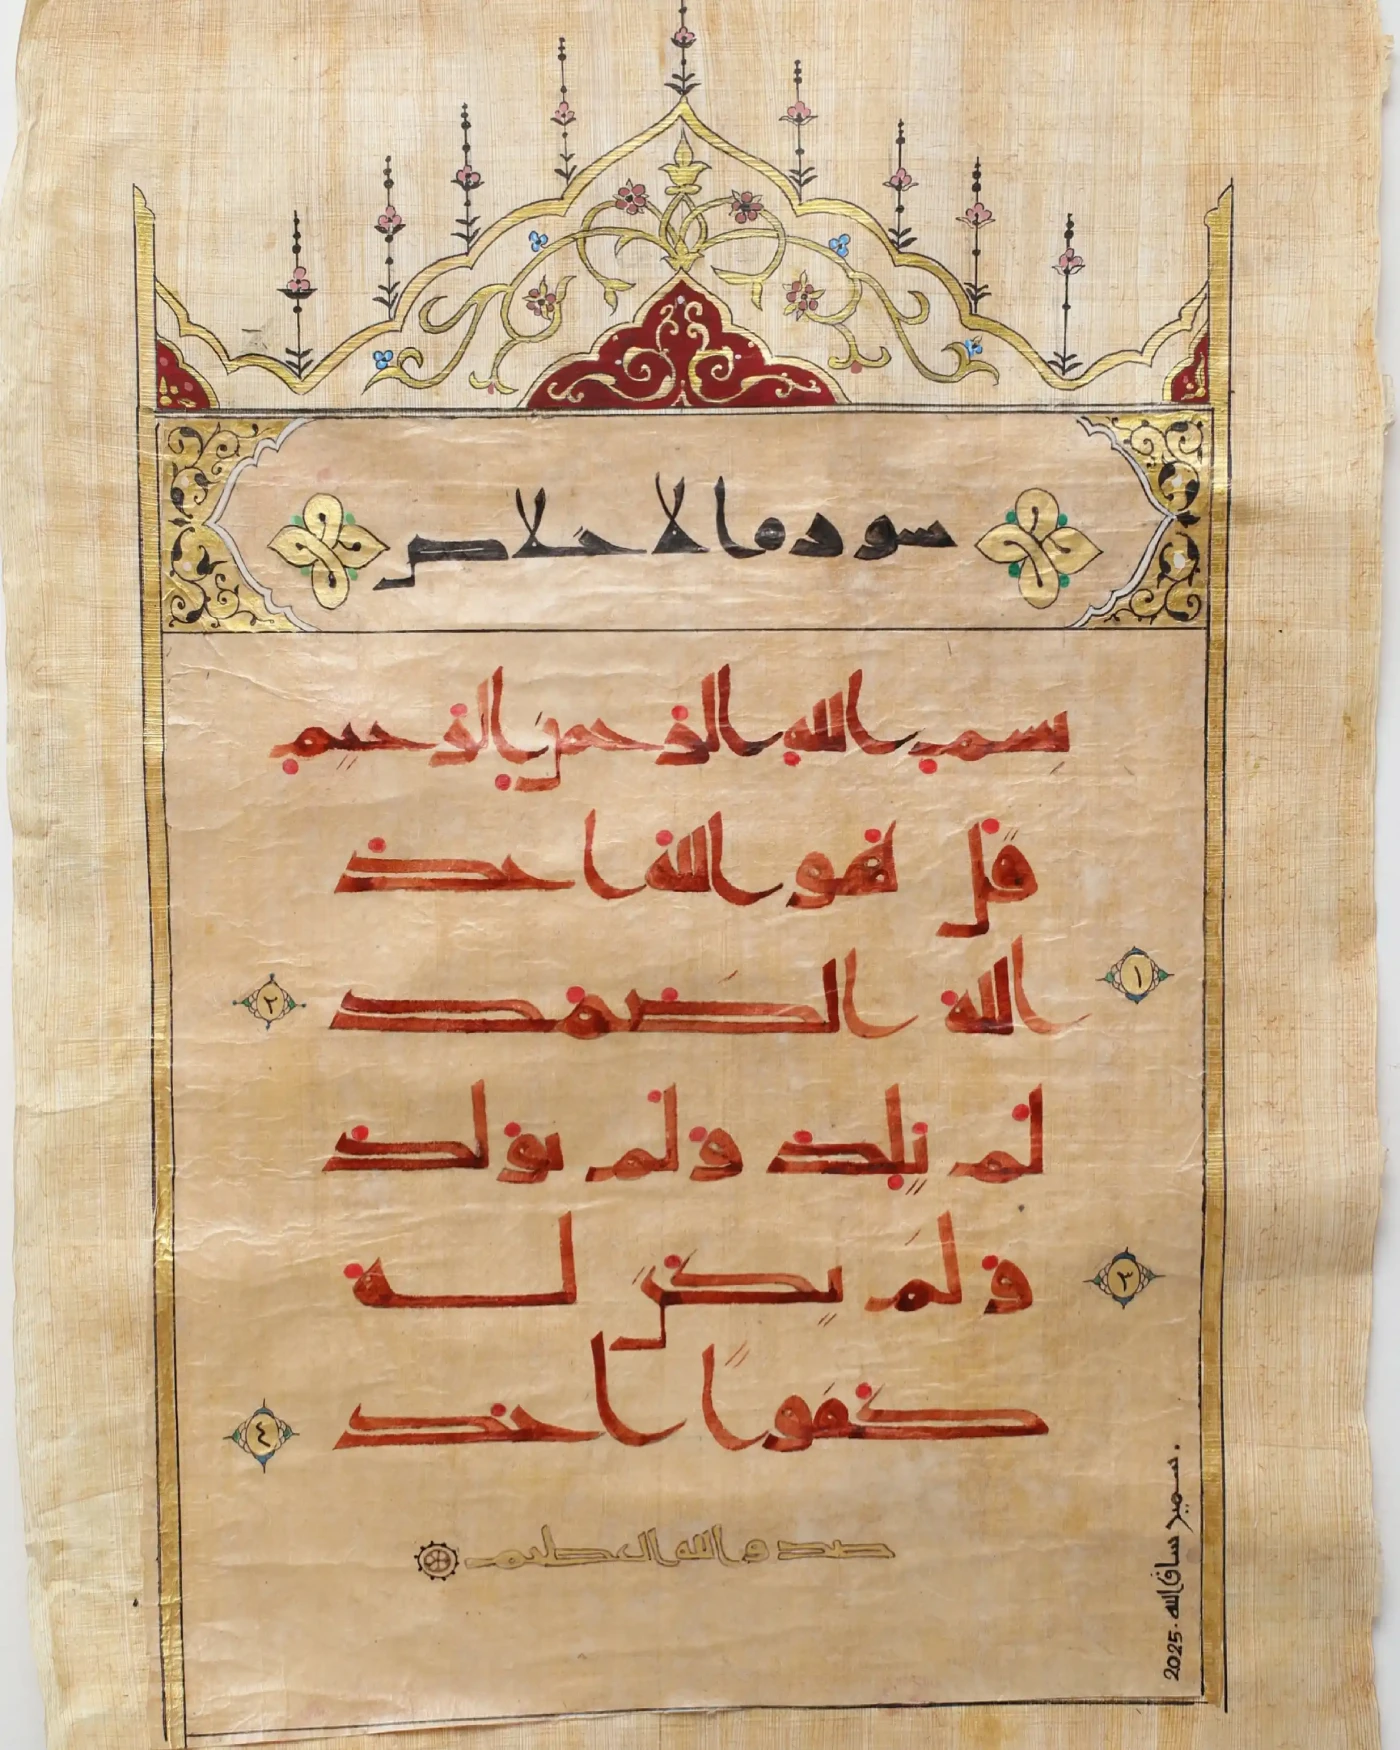 سورة الاخلاص
بسم الله الرحمن الرحيم
قل هو الله احد
١ الله الصمد ٢
لم يلد ولم يولد
٣ ولم يكن له
كفوا احد ٤
صدق الله العظيم
2025.